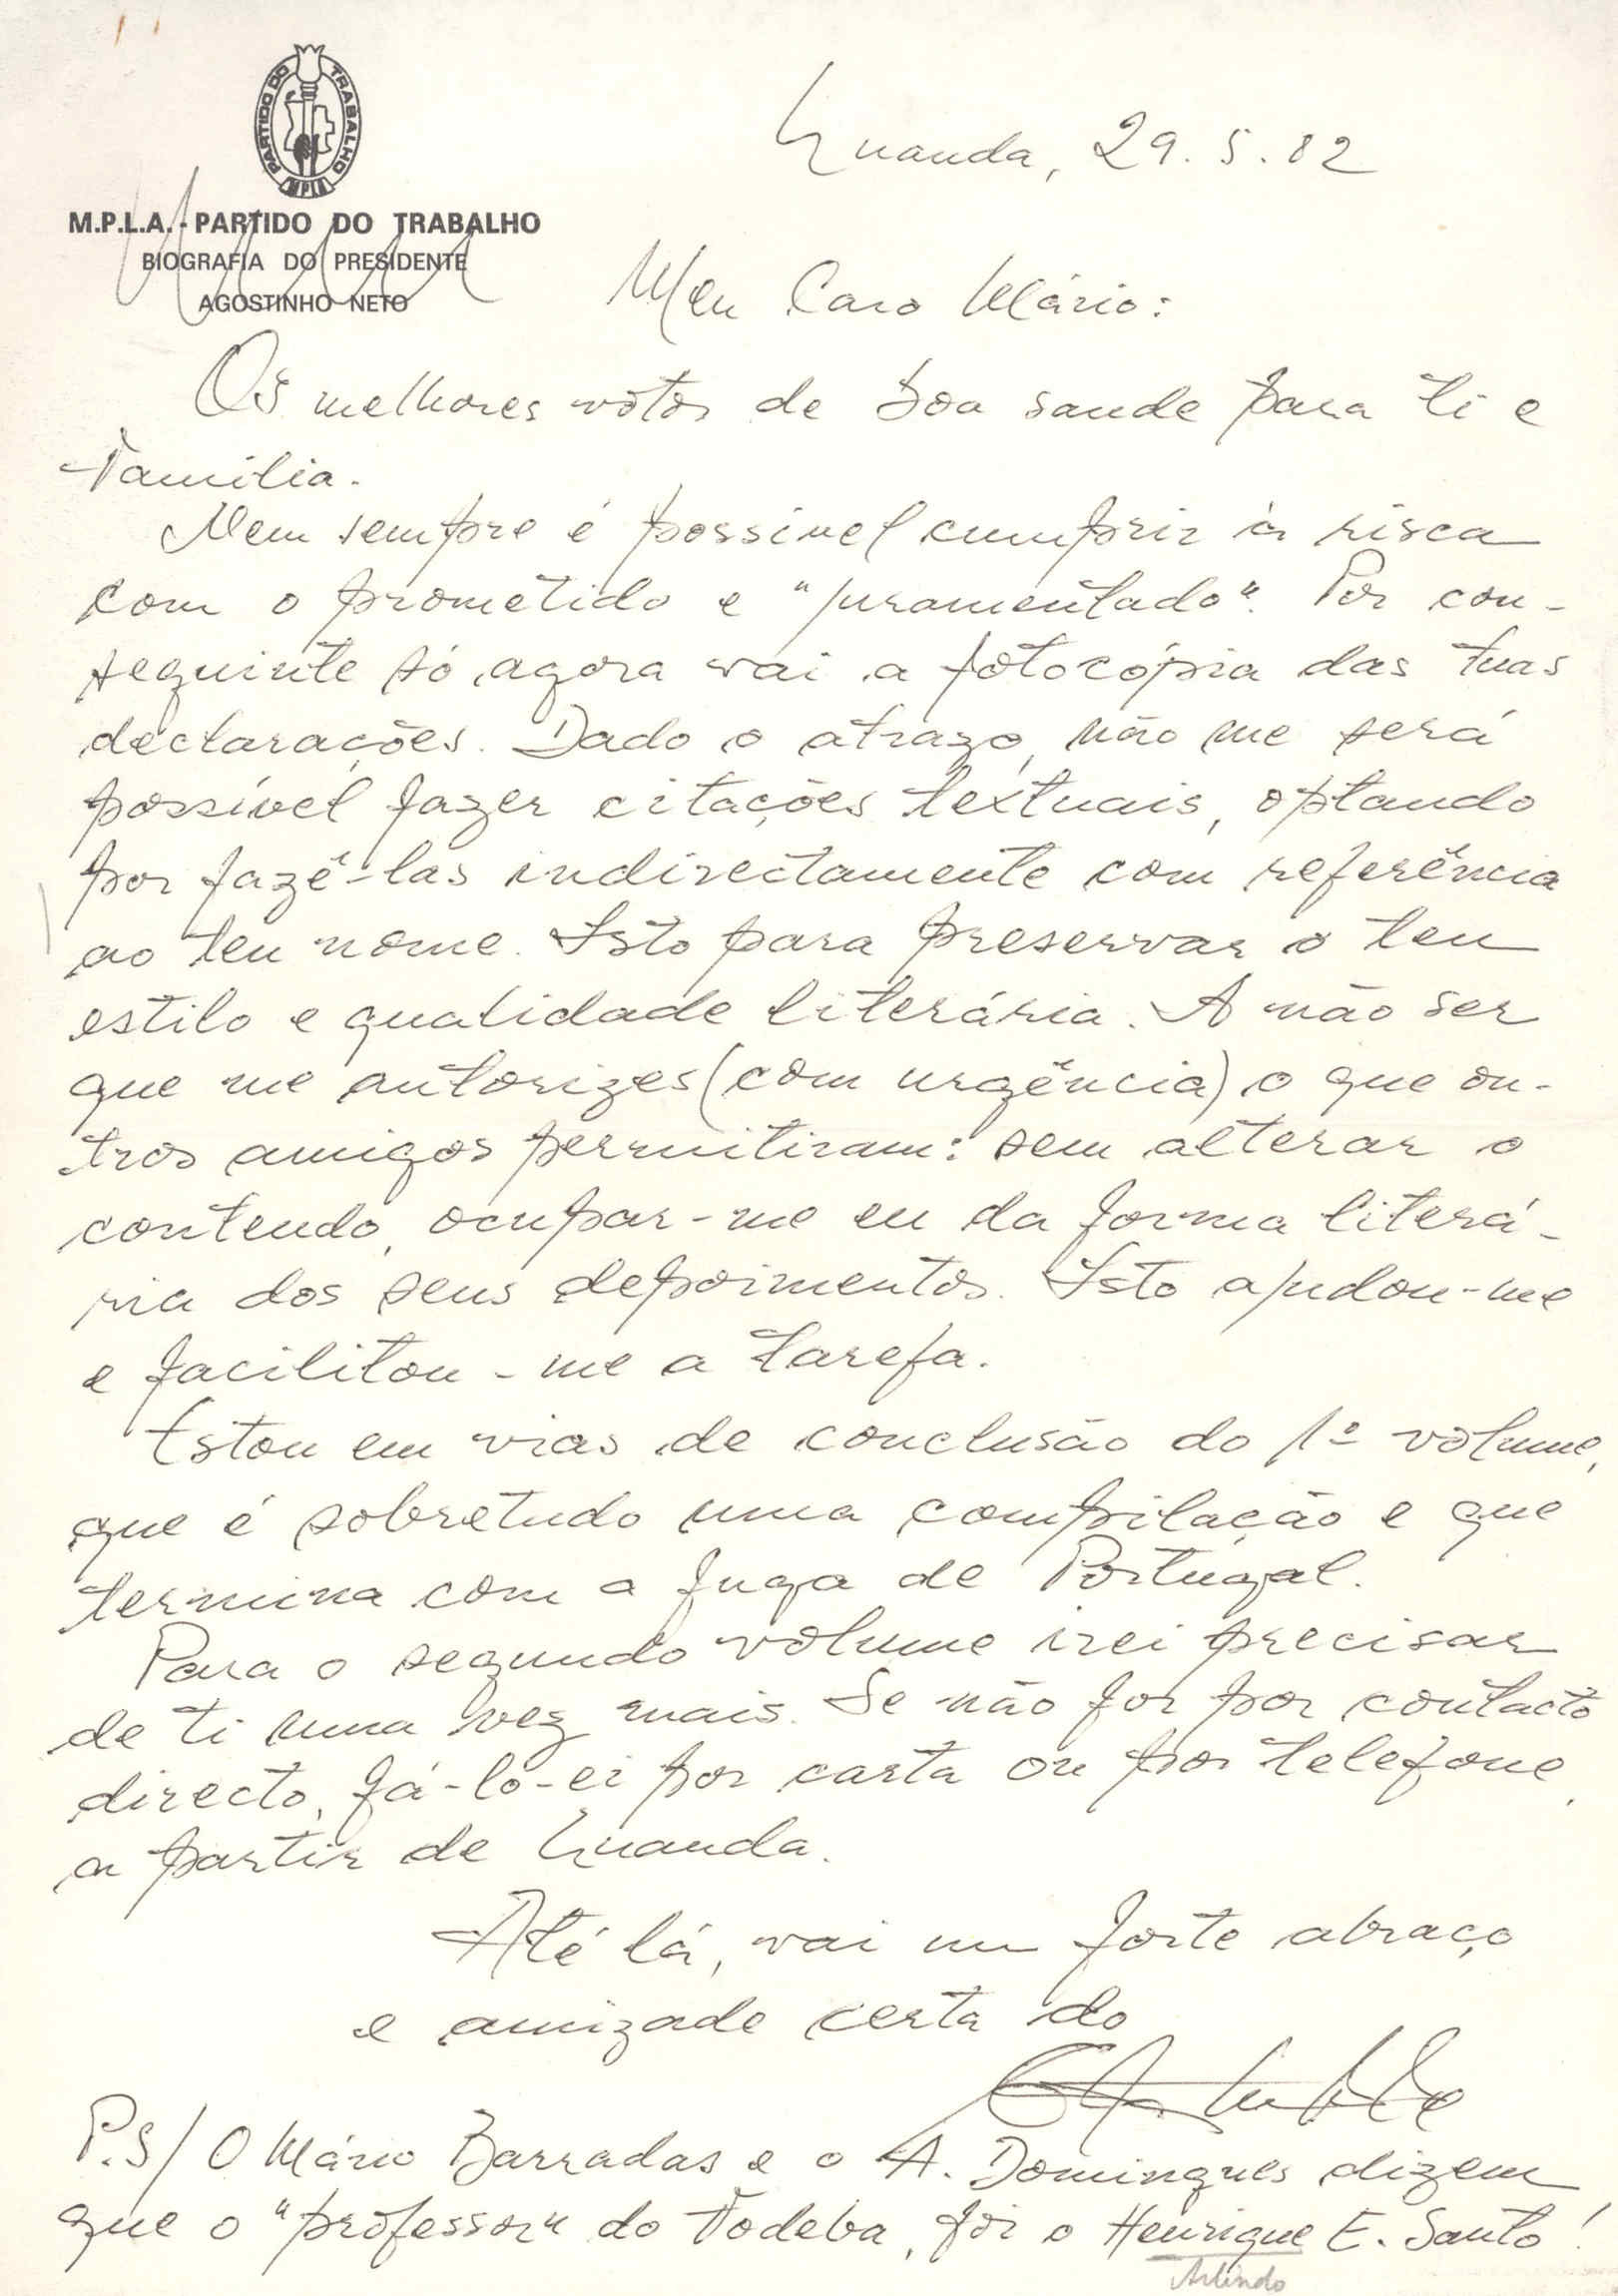 PARTIDO DO TRABALHO
MPLA
M.P.L.A. - PARTIDO DO TRABALHO
BIOGRAFIA DO PRESIDENTE
AGOSTINHO NETO
Luanda, 29.5.82
Meu Caro Mário:
Os melhores votos de boa saude para ti e
família.
Nem sempre é possível cumprir à risca
com o prometido e "juramentado". Por con-
seguinte só agora vai a fotocópia das tuas
declarações. Dado o atrazo, não me será
possível fazer citações textuais, optando
por fazê-las indirectamente com referência
ao teu nome. Isto para preservar o teu
estilo e qualidade literária. A não ser
que me autorizes (com urgência) o que ou-
tros amigos permitiram: sem alterar o
conteudo, ocupar-me eu da forma literá-
ria dos seus depoimentos. Isto ajudou-me
e facilitou-me a tarefa.
Estou em vias de conclusão do 1º volume,
que é sobretudo uma compilação e que
termina com a fuga de Portugal.
Para o segundo volume irei precisar
de ti uma vez mais. Se não for por contacto
directo, fá-lo-ei por carta ou por telefone,
a partir de Luanda.
Até lá, vai um forte abraço
e amizade certa do
P.S/ O Mário Barradas e o A. Domingues dizem
que o "professor" do Todeba, foi o Henrique E. Santo!
Arlindo